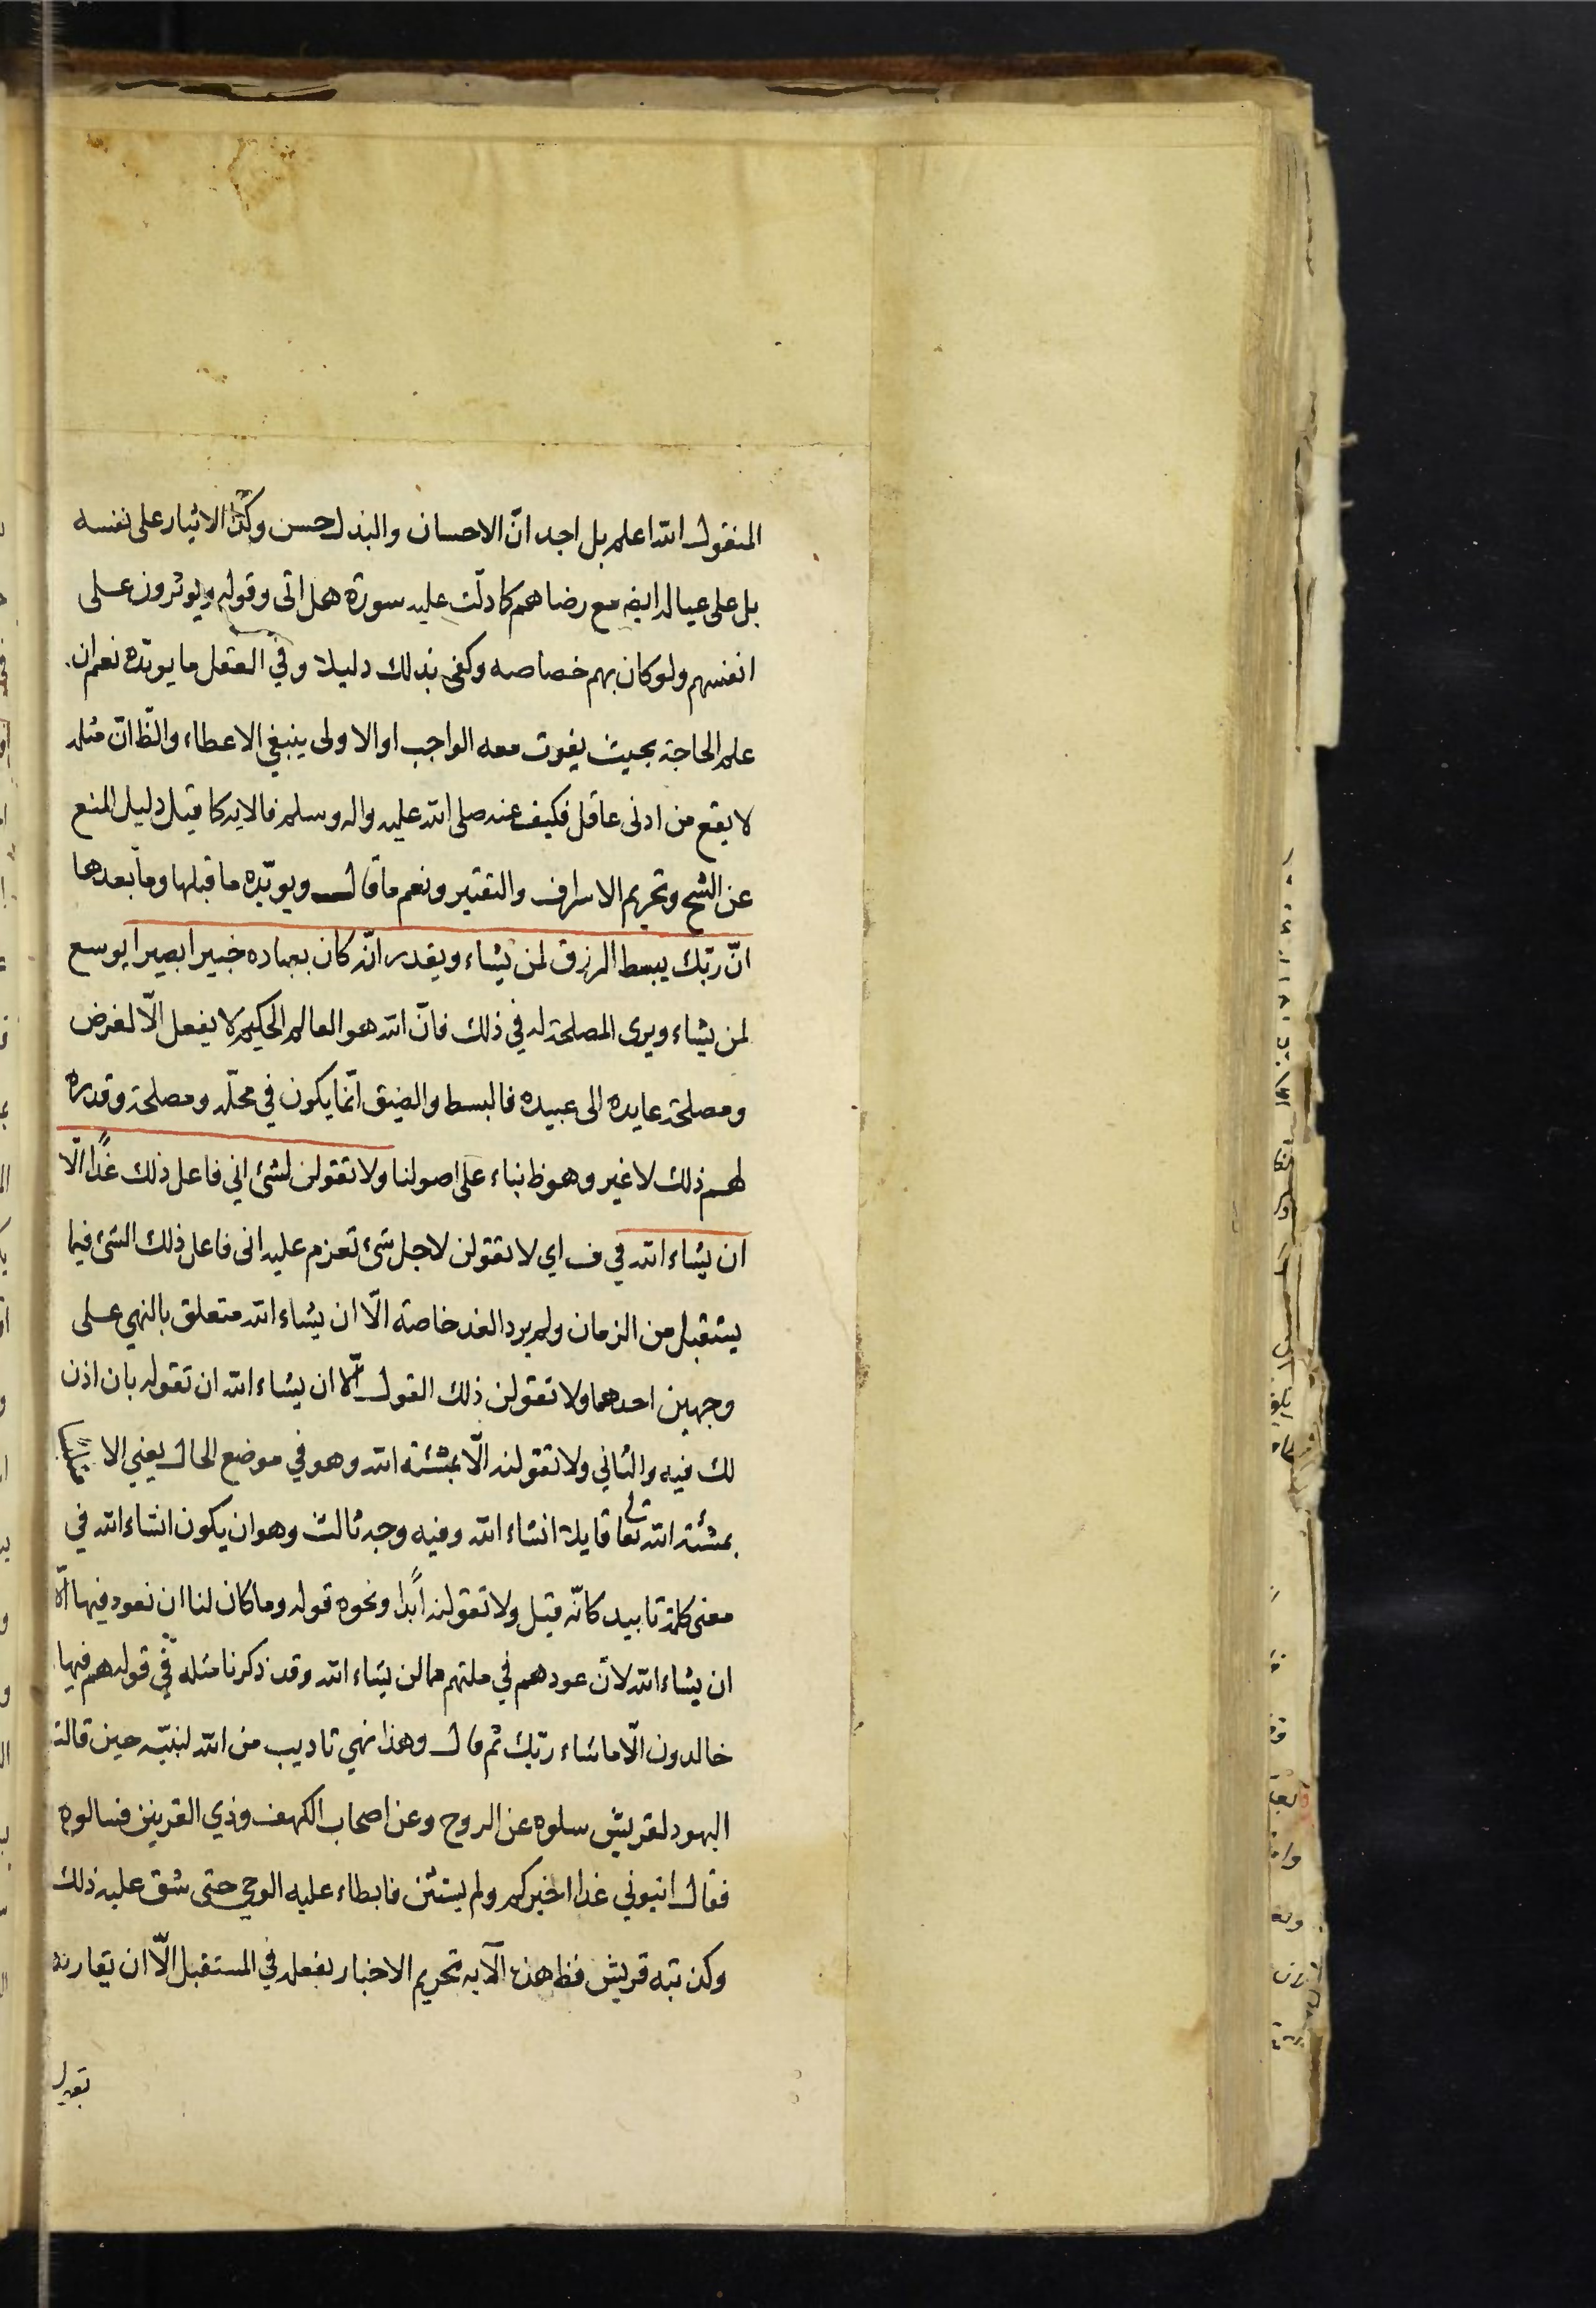 المنقول الله اعلم بل اجد انّ الاحسان والبذل حسن وكذا الايثار على نفسه
بل على عياله ايضه مع رضاهم كما دلّت عليه سورة هل اتى وقوله ويوثرون على
انفسهم ولو كان بهم خصاصه وكفى بذلك دليلا وفي العقل ما يويّده نعم ان
علم الحاجة بحيث يفوت معه الواجب او الاولى ينبغي الاعطاء والظّ انّ مثله
لا يقع من ادنى عاقل فكيف عنه صلى الله عليه واله وسلم فالايه كما قيل دليل المنع
عن الشح وتحريم الاسراف والتقتير ونعم ما قال ويويّده ما قبلها وما بعدها
انّ ربّك يبسط الرزق لمن يشاء ويقدر انّه كان بعباده خبيرا بصيرا يوسع
لمن يشاء ويرى المصلحة له في ذلك فانّ الله هو العالم الحكيم لا يفعل الّا لغرض
ومصلحة عايده الى عبيده فالبسط والضيق انّما يكون في محلّه ومصلحة وقدره
لهم ذلك لا غير وهو ظ بناء على اصولنا ولا تقولن لشئ اني فاعل ذلك غدًا الّا
ان يشاء الله في ف اي لا تقولن لاجل شئ تعزم عليه انى فاعل ذلك الشئ فيما
يستقبل من الزمان ولم يرد الغد خاصة الّا ان يشاء الله متعلق بالنهي على
وجهين احدهما ولا تقولن ذلك القول الّا ان يشاء الله ان تقوله بان اذن
لك فيه والثاني ولا تقولنه الّا بمشئة الله وهو في موضع الحال يعني الا
بمشئة الله تعالى قايلا انشاء الله وفيه وجه ثالث وهو ان يكون انشاء الله في
معنى كلمة تابيد كانّه قيل ولا تقولنه ابدًا ونحوه قوله وما كان لنا ان نعود فيها الّا
ان يشاء الله لانّ عودهم في ملتهم مما لن يشاء الله وقد ذكرنا مثله في قوله هم فيها
خالدون الّا ما شاء ربّك ثم قال وهذا نهي تاديب من الله لنبيّه حين قالت
اليهود لقريش سلوه عن الروح وعن اصحاب الكهف وذي القرنين فسالوه
فقال ايتوني غدا اخبركم ولم يستثن فابطاء عليه الوحي حتى شق عليه ذلك
وكذبته قريش فظ هذه الآيه تحريم الاخبار بفعله في المستقبل الّا ان يقارنه
بقول